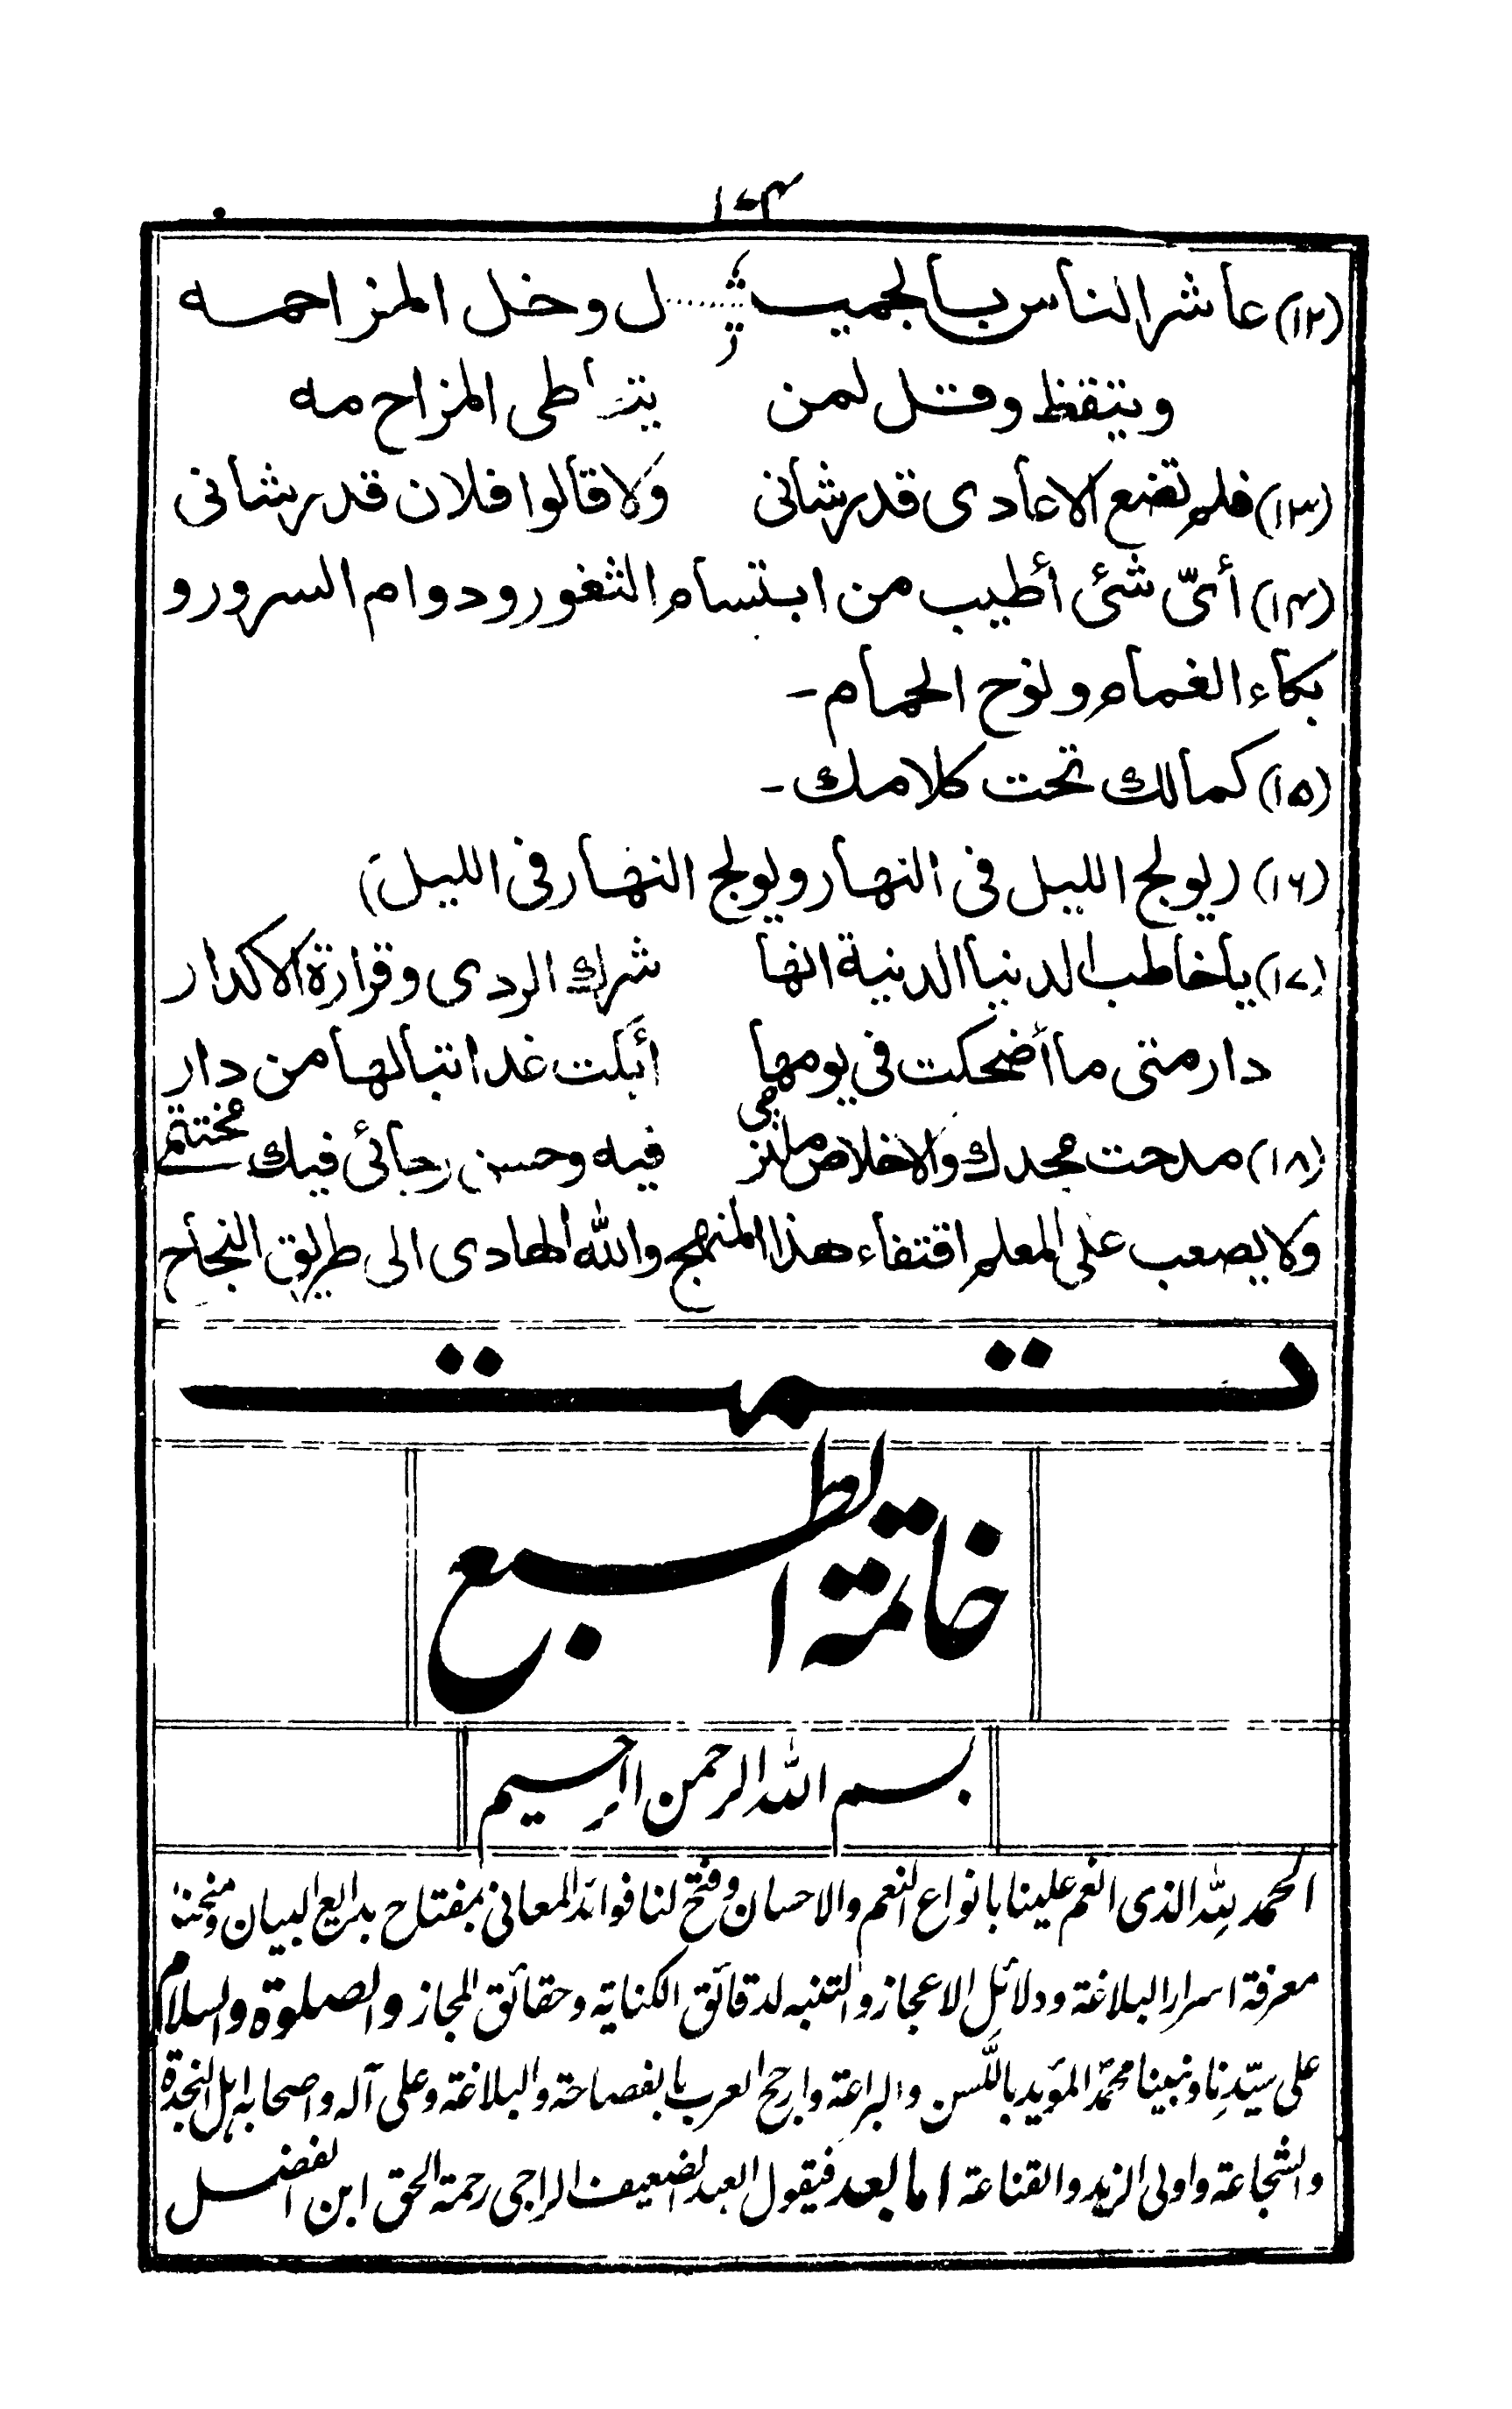 ١٧٤
(١٢) عاشر الناس بالجميـ ........ ل وخل المزاحمه
وتيقظ وقل لمن يتعاطى المزاح مه
(١٣) فلم تضع الاعادى قدر شانى ولا قالوا فلان قد رشانى
(١٤) أىّ شئى أطيب من ابتسام الثغور ودوام السرور و
بكاء الغمام ونوح الحمام -
(١٥) كمالك تحت كلامك -
(١٦) (يولج الليل فى النهار ويولج النهار فى الليل)
(١٧) يا خاطب الدنيا الدنية انها شرك الردى وقرارة الاكدار
دار متى ما أضحكت فى يومها أبكت غدا تبا لها من دار
(١٨) مدحت مجدك والاخلاص ملتزمى فيه وحسن رجائى فيك مختتمى
ولا يصعب على المعلم اقتفاء هذا المنهج والله الهادى الى طريق النجاح
تمت
خاتمة الطبع
بسم الله الرحمن الرحيم
الحمد لله الذى انعم علينا بانواع النعم والاحسان وفتح لنا فوائد المعانى بمفتاح بدايع البيان ومنحنا
معرفة اسرار البلاغة ودلائل الاعجاز والتنبه لدقائق الكناية وحقائق المجاز والصلوة والسلام
على سيّدنا ونبينا محمّد المؤيد باللّسن والبراعة وارجح العرب بالفصاحة والبلاغة وعلى آله واصحابه اهل النجدة
والشجاعة واولى الزهد والقناعة اما بعد فيقول العبد الضعيف الراجى رحمة الحق ابن الفضل